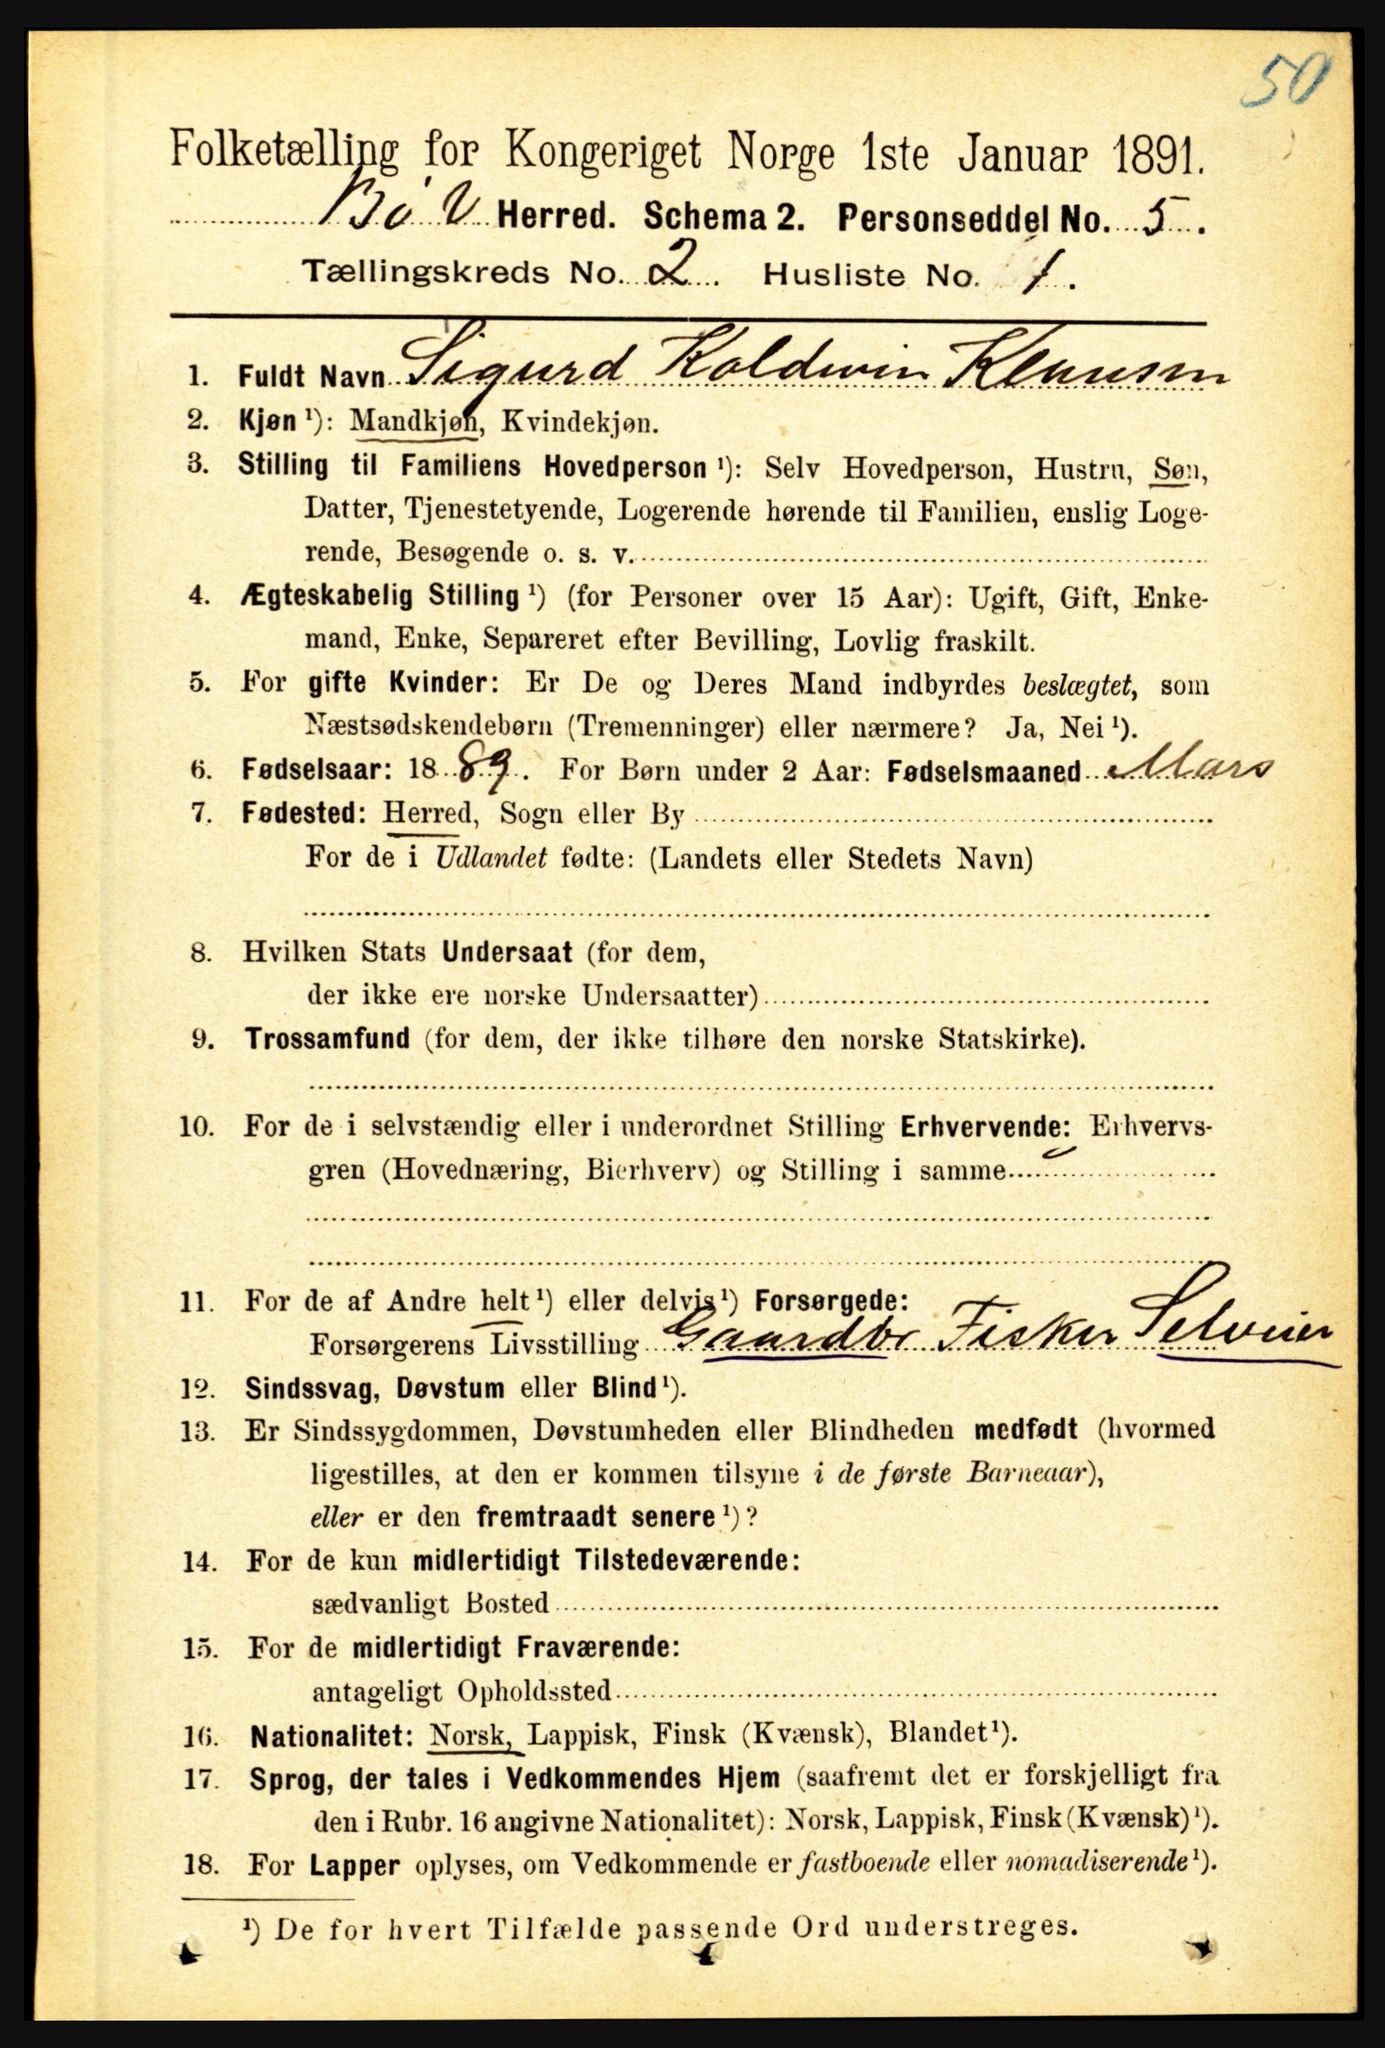 50
Folketælling for Kongeriget Norge 1ste Januar 1891.
Bø V Herred. Schema 2. Personseddel No. 5.
Tællingskreds No. 2. Husliste No. 1.
1. Fuldt Navn Sigurd Koldevin Klausen
2. Kjøn ¹): Mandkjøn, Kvindekjøn.
3. Stilling til Familiens Hovedperson ¹): Selv Hovedperson, Hustru, Søn,
Datter, Tjenestetyende, Logerende hørende til Familien, enslig Loge-
rende, Besøgende o. s. v.
4. Ægteskabelig Stilling ¹) (for Personer over 15 Aar): Ugift, Gift, Enke-
mand, Enke, Separeret efter Bevilling, Lovlig fraskilt.
5. For gifte Kvinder: Er De og Deres Mand indbyrdes beslægtet, som
Næstsødskendebørn (Tremenninger) eller nærmere? Ja, Nei ¹).
6. Fødselsaar: 1889. For Børn under 2 Aar: Fødselsmaaned Mars
7. Fødested: Herred, Sogn eller By
For de i Udlandet fødte: (Landets eller Stedets Navn)
8. Hvilken Stats Undersaat (for dem,
der ikke ere norske Undersaatter)
9. Trossamfund (for dem, der ikke tilhøre den norske Statskirke).
10. For de i selvstændig eller i underordnet Stilling Erhvervende: Erhvervs-
gren (Hovednæring, Bierhverv) og Stilling i samme
11. For de af Andre helt ¹) eller delvis ¹) Forsørgede:
Forsørgerens Livsstilling Gaardbr Fisker Selveier
12. Sindssvag, Døvstum eller Blind ¹).
13. Er Sindssygdommen, Døvstumheden eller Blindheden medfødt (hvormed
ligestilles, at den er kommen tilsyne i de første Barneaar),
eller er den fremtraadt senere ¹)?
14. For de kun midlertidigt Tilstedeværende:
sædvanligt Bosted
15. For de midlertidigt Fraværende:
antageligt Opholdssted
16. Nationalitet: Norsk, Lappisk, Finsk (Kvænsk), Blandet ¹).
17. Sprog, der tales i Vedkommendes Hjem (saafremt det er forskjelligt fra
den i Rubr. 16 angivne Nationalitet): Norsk, Lappisk, Finsk (Kvænsk) ¹).
18. For Lapper oplyses, om Vedkommende er fastboende eller nomadiserende ¹).
¹) De for hvert Tilfælde passende Ord understreges.